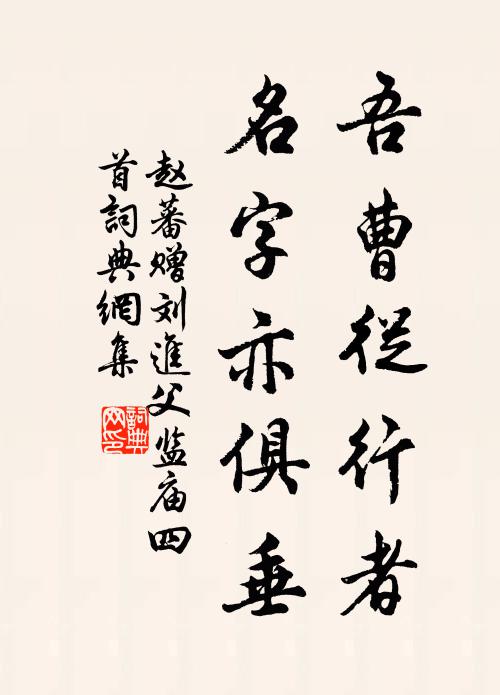 吾曹従行者
名字亦俱垂
赵蕃赠刘進父监庙四
首詞典網集
詞典网印